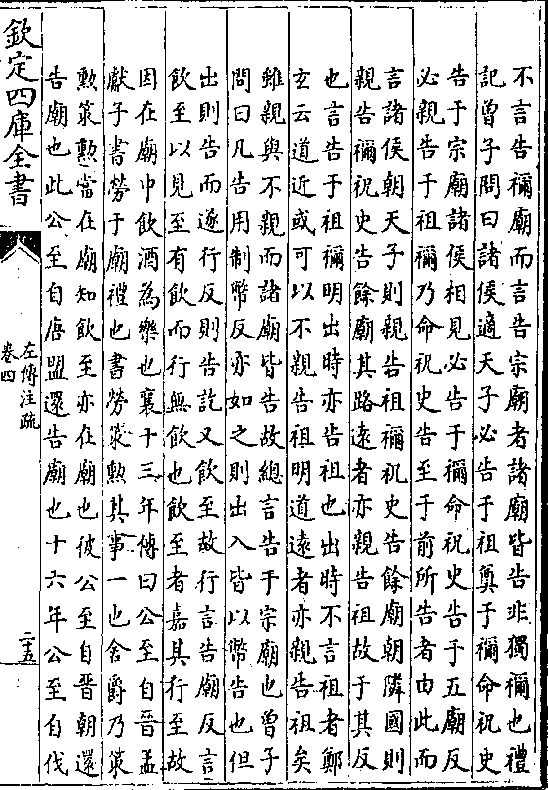 不言告禰廟而言告宗廟者諸廟皆告非獨禰也禮
記曾子問曰諸侯適天子必告于祖奠于禰命祝史
告于宗廟諸侯相見必告于禰命祝史告于五廟反
必親告于祖禰乃命祝史告至于前所告者由此而
言諸侯朝天子則親告祖禰祝史告餘廟朝隣國則
親告禰祝史告餘廟其路遠者亦親告祖故于其反
也言告于祖禰明出時亦告祖也出時不言祖者鄭
玄云道近或可以不親告祖明道遠者亦親告祖矣
雖親與不親而諸廟皆告故總言告于宗廟也曾子
問曰凡告用制幣反亦如之則出入皆以幣告也但
出則告而遂行反則告訖又飲至故行言告廟反言
飲至以見至有飲而行無飲也飲至者嘉其行至故
因在廟中飲酒為樂也襄十三年傳曰公至自晉孟
獻子書勞于廟禮也書勞策勲其事一也舍爵乃策
勲策勲當在廟知飲至亦在廟也彼公至自晉朝還
告廟也此公至自唐盟還告廟也十六年公至自伐
欽定四庫全書
左傳注疏
卷四
二五